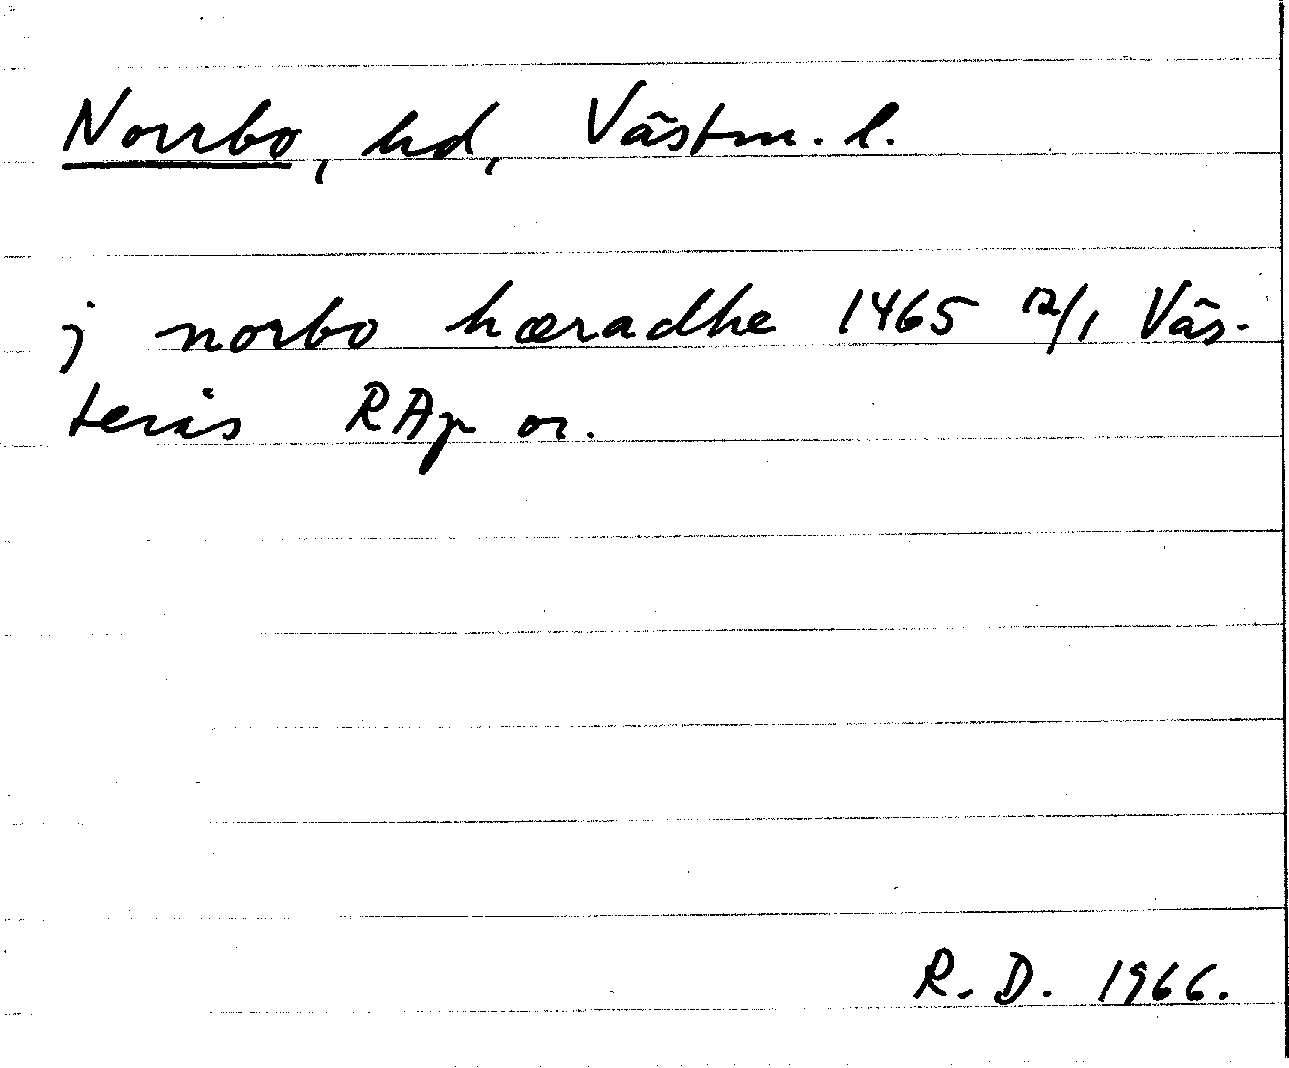 Norrbo, hd, Västm. l.
j norbo hæradhe 1465 12/1 Väs-
terås RAp or.
R. D. 1966.